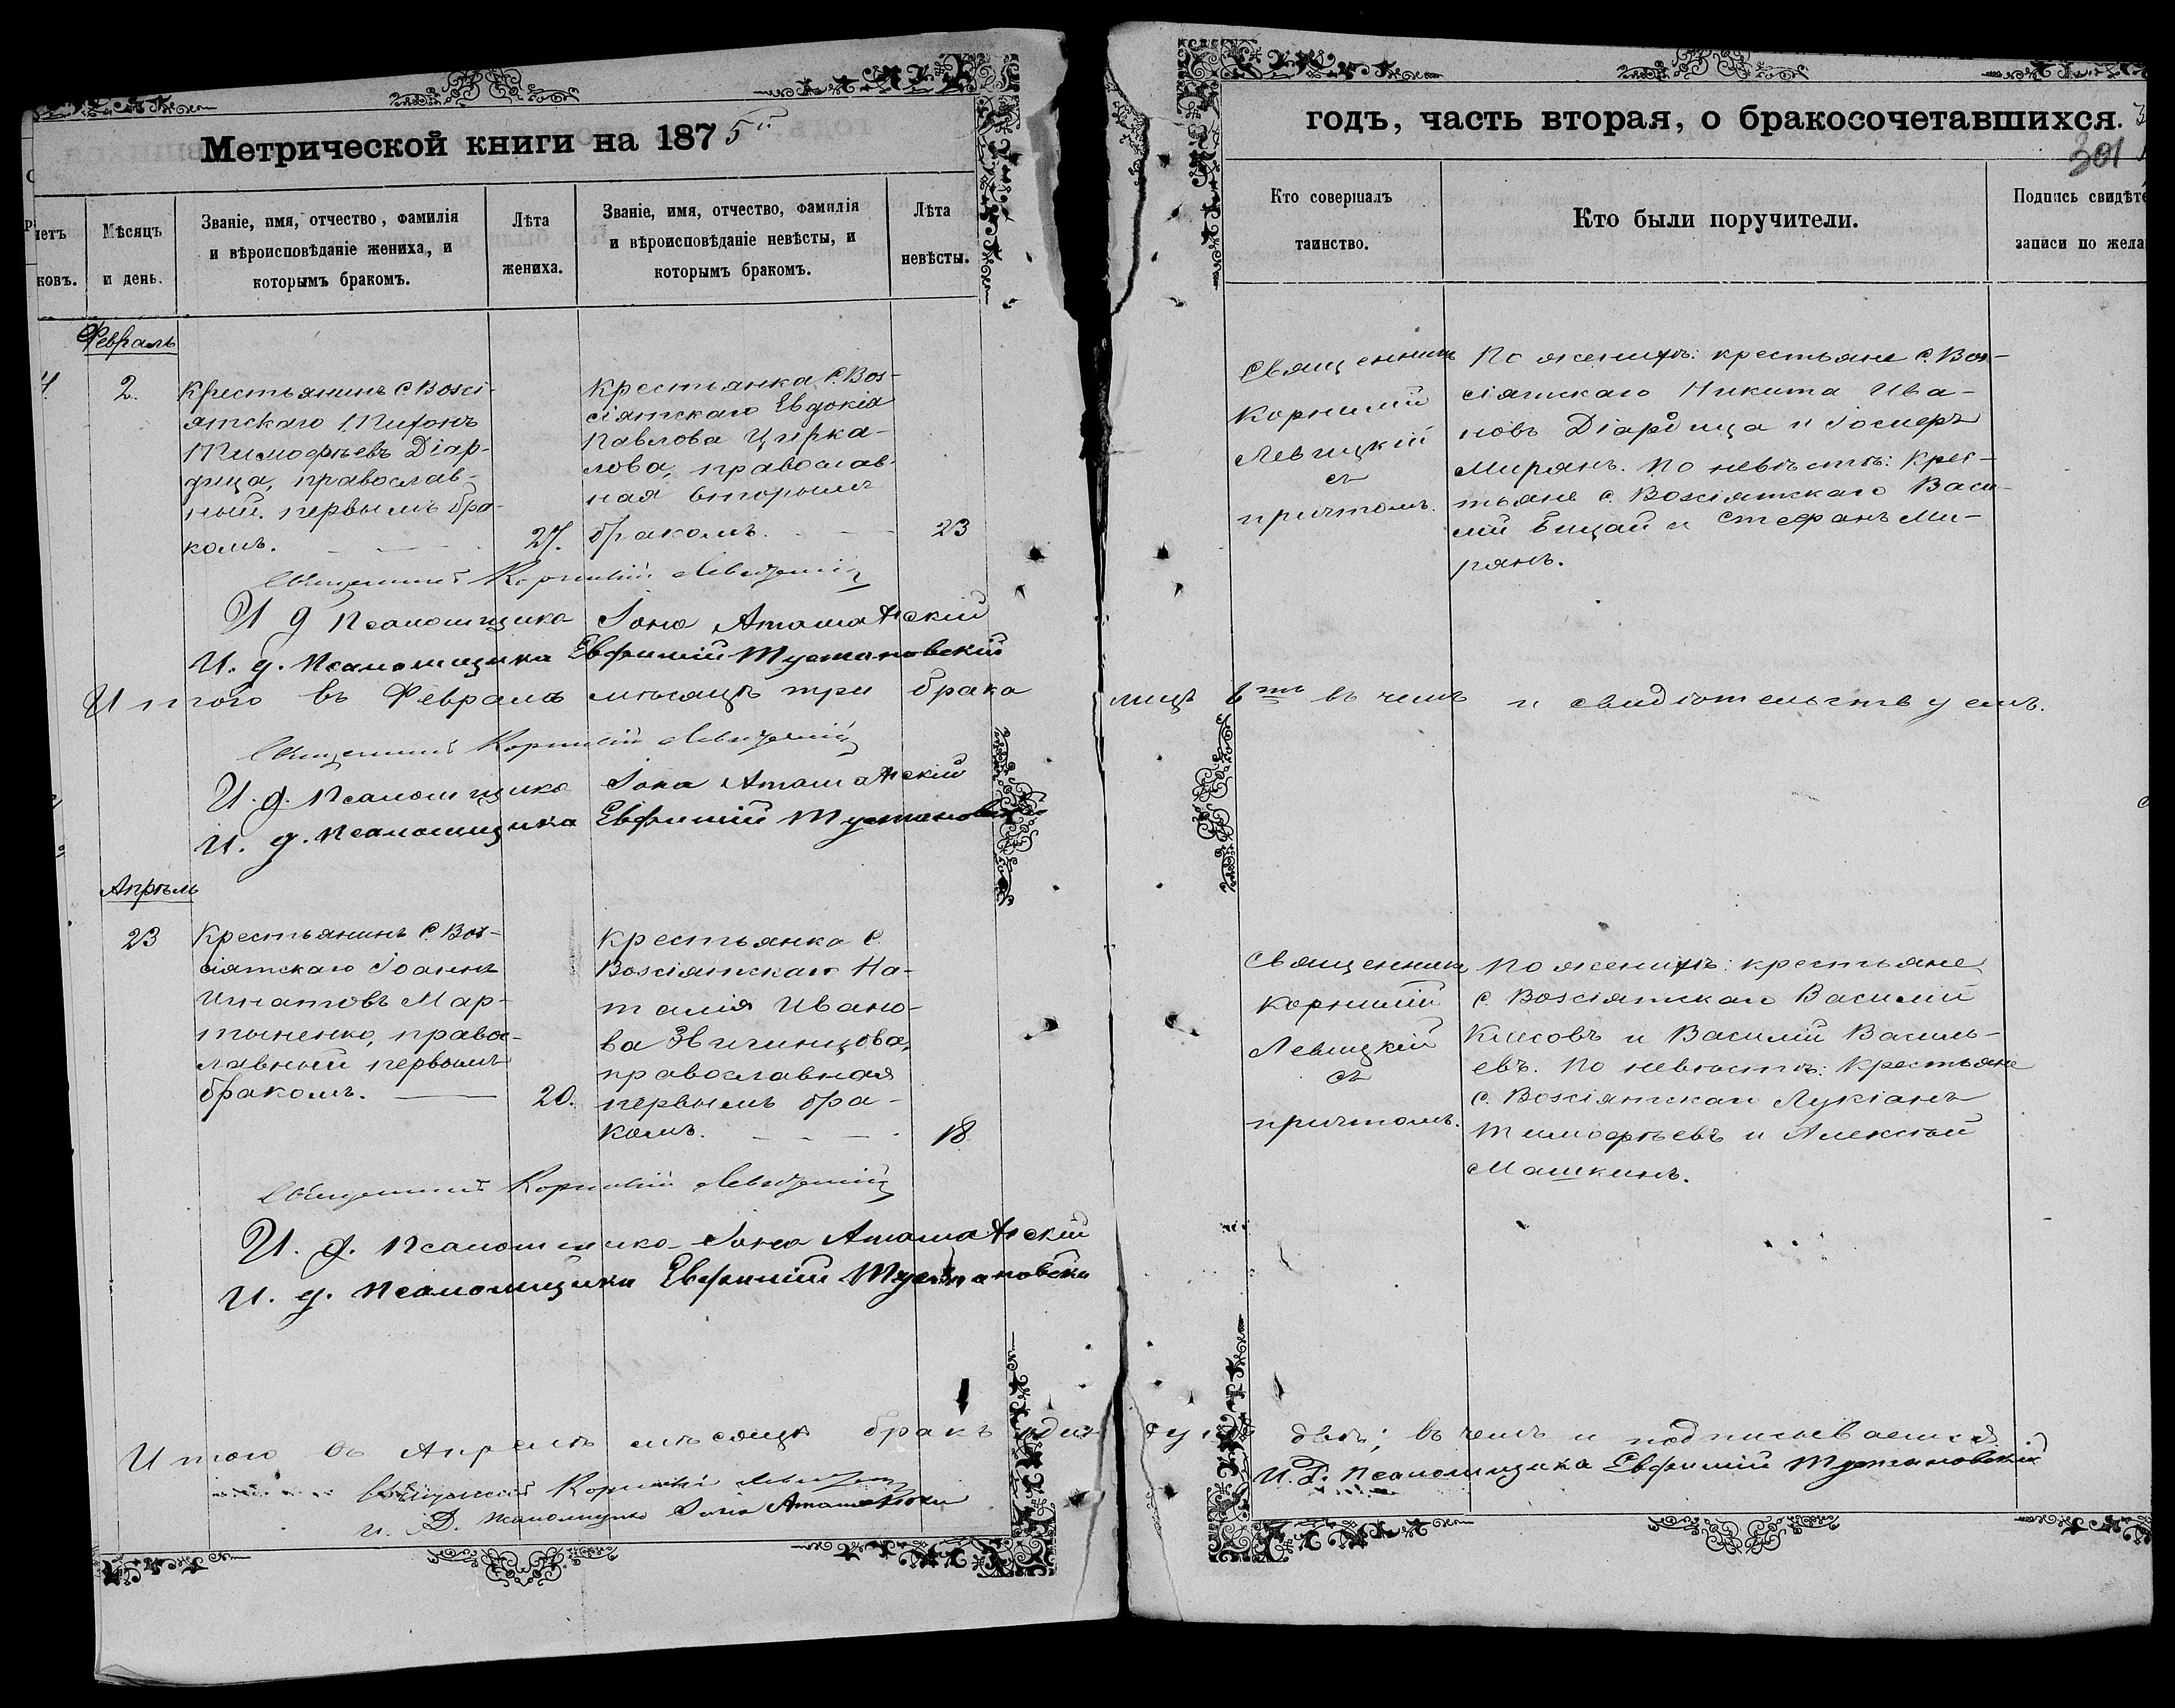 Метрической книги на 1875й
годъ, часть вторая, о бракосочетавшихся.
301
Мѣсяцъ
и день.
Званіе, имя, отчество, фамилія
и вѣроисповѣданіе жениха, и
которымъ бракомъ.
Лѣта
жениха.
Званіе, имя, отчество, фамилія
и вѣроисповѣданіе невѣсты, и
которымъ бракомъ.
Лѣта
невѣсты.
Кто совершалъ
таинство.
Кто были поручители.
Подпись свидѣте
записи по жела
Февраль
4
2.
Крестьянинъ с. Возсі-
ятскаго Тихонъ
Тимофѣевъ Діар-
дица, православ-
ный. первымъ бра-
комъ.
27.
Крестьянка с. Воз-
сіятскаго Евдокія
Павлова Цирка-
лова, православ-
ная вторымъ
бракомъ.
23
Священникъ
Корнилій
Левицкій
съ
причтомъ.
По женихѣ: крестьяне с. Воз-
сіятскаго Никита Ива-
новъ Діардица и Іосифъ
Мирянъ. По невѣстѣ: крес-
тьяне с. Возсіятскаго Васи-
лій Бицай и Стефанъ Ми-
рянъ.
Священникъ Корнилій Левицкій
И д Псаломщика Іона
И. д. Псаломщика Евфимій Тустановскій
Итого въ Февралѣ мѣсяцѣ три брака лицъ 6ть въ чемъ и свидѣтельствуемъ.
Священникъ Корнилій Левицкій
И. д. Псаломщика Іона
И. д. Псаломщика Евфимій Тустановскій
Апрѣль
23
Крестьянинъ с. Воз-
сіятскаго Іоаннъ
Игнатовъ Мар-
тыненко, право-
славный первымъ
бракомъ.
20.
Крестьянка с.
Возсіятскаго На-
талія Ивано-
ва Звичинцова,
православная
первымъ бра-
комъ.
18
Священникъ
Корнилій
Левицкій
съ
причтомъ.
По женихѣ: крестьяне
с. Возсіятскаго Василій
и Василій Василь-
евъ. По невѣстѣ: Крестьяне
с. Возсіятскаго Лукіанъ
Тимофѣевъ и Алексѣй
Машкинъ.
Священникъ Корнилій Левицкій
И. д. Псаломщика Іона
И. д. Псаломщика Евфимій Тустановскій
Итого въ Апрѣлѣ мѣсяцѣ бракъ одинъ двѣ; въ чемъ и подписываемся.
Священникъ Корнилій Левицкій
И. Д. Псаломщика Іона
И. Д. Псаломщика Евфимій Тустановскій